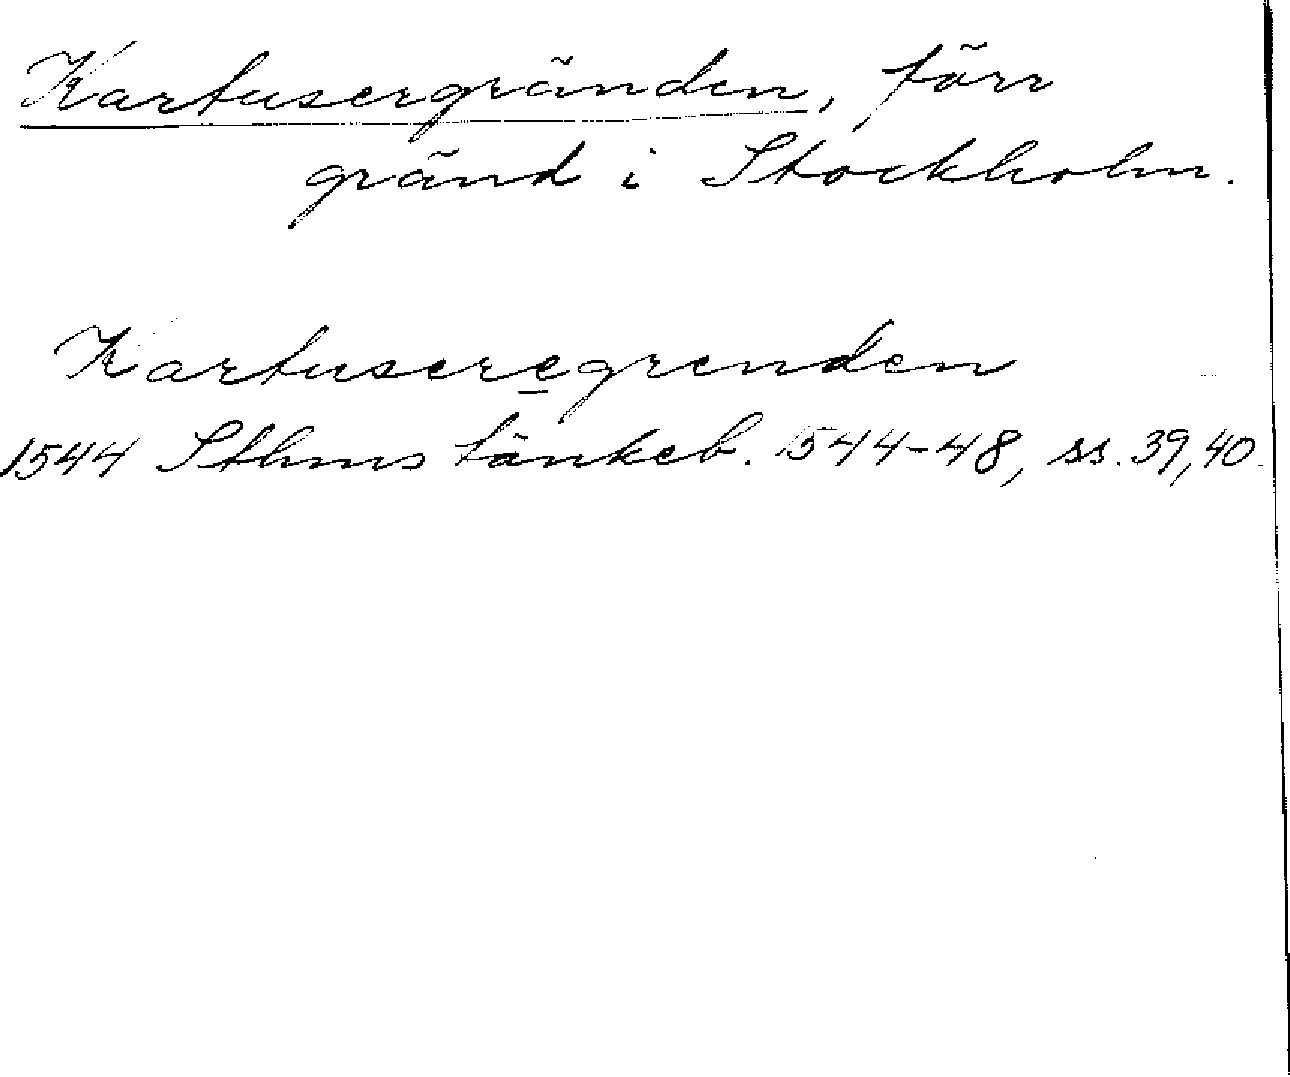 Kartusergränden, förr
gränd i Stockholm.
Kartuseregrenden
1544 Sthms tänkeb. 1544-48, ss. 39, 40.